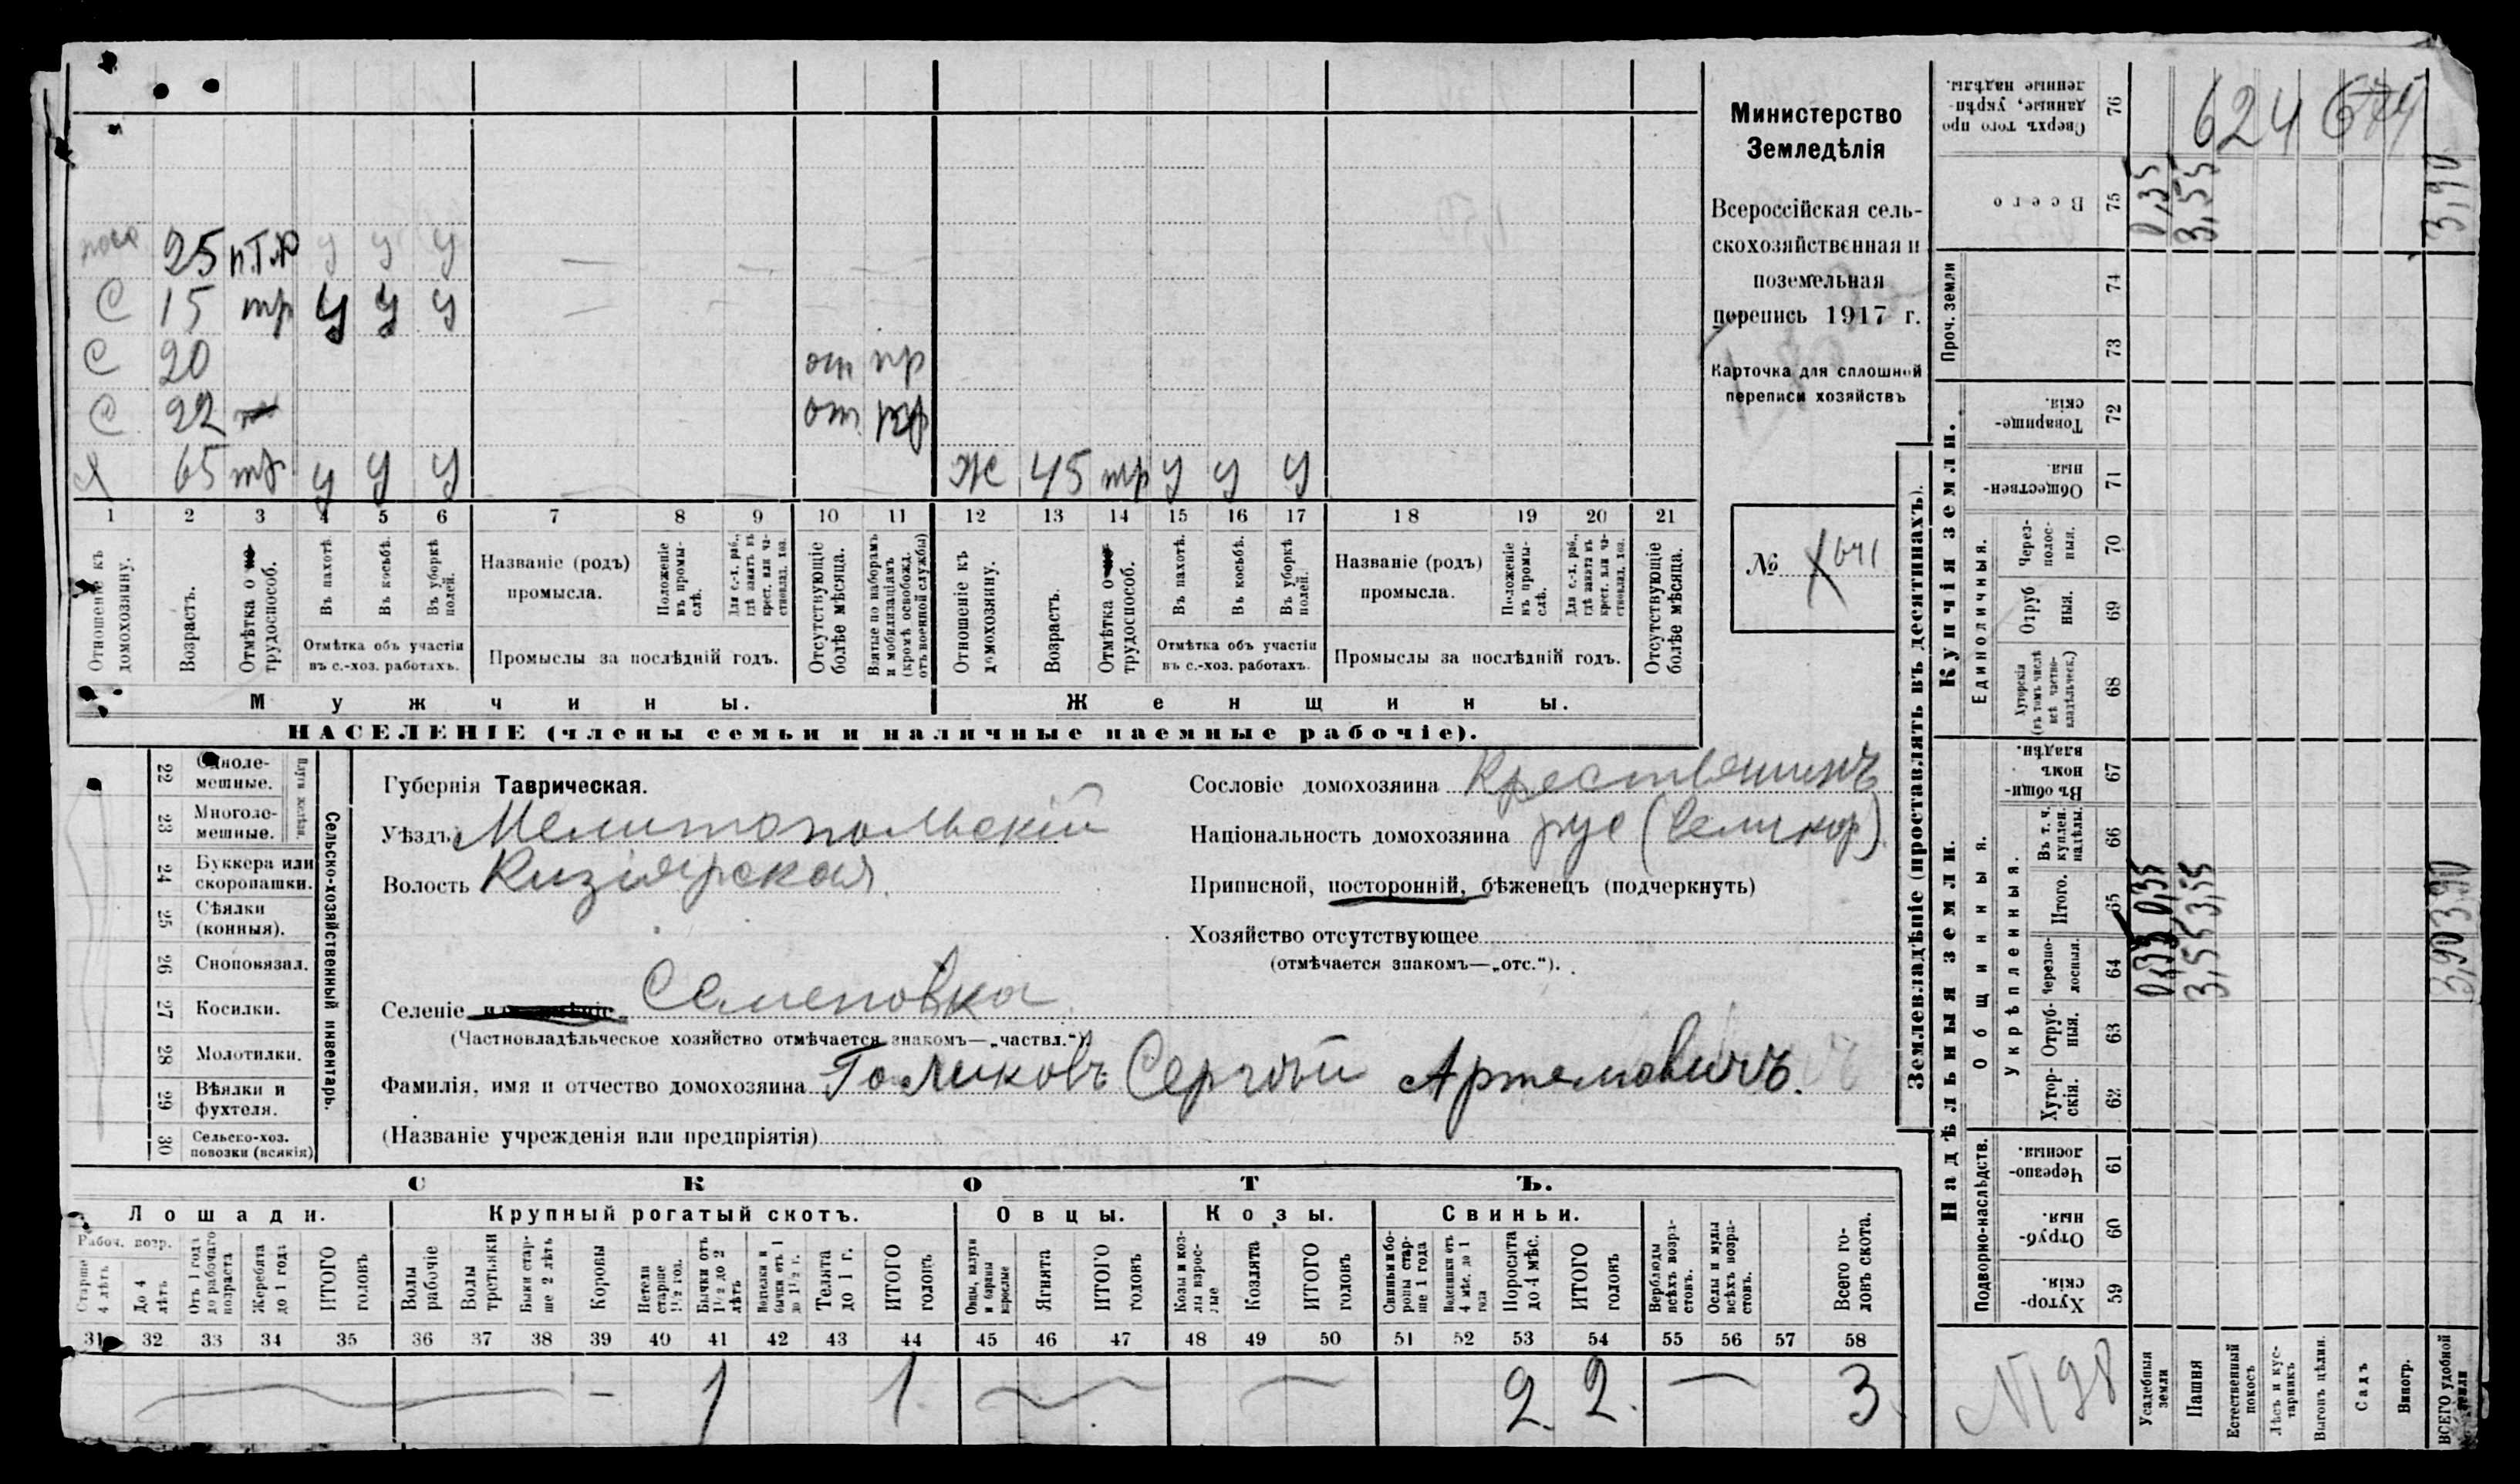 Министерство
Земледѣлія
Всероссійская сель-
скохозяйственная и
поземельная
перепись 1917 г.
Карточка для сплошной
переписи хозяйствъ
№ 641
25 н.т.р у у у
С 15 тр у у у
С 20 от пр
С 22 от пр
Х 65 тр у у у Ж 45 тр у у у
1 2 3 4 5 6 7 8 9 10 11 12 13 14 15 16 17 18 19 20 21
Отношеніе къ домохозяину.
Возрастъ.
Отмѣтка о трудоспособ.
Въ пахотѣ.
Въ косьбѣ.
Въ уборкѣ полей.
Отмѣтка объ участіи въ с.-хоз. работахъ.
Названіе (родъ) промысла.
Положеніе въ промыслѣ.
Для с.-х. раб., гдѣ занятъ въ крест. или частновлад. хоз.
Промыслы за послѣдній годъ.
Отсутствующіе болѣе мѣсяца.
Взятые по наборамъ и мобилизаціямъ (кромѣ освобожд. отъ военной службы)
Отношеніе къ домохозяину.
Возрастъ.
Отмѣтка о трудоспособ.
Въ пахотѣ.
Въ косьбѣ.
Въ уборкѣ полей.
Отмѣтка объ участіи въ с.-хоз. работахъ.
Названіе (родъ) промысла.
Положеніе въ промыслѣ.
Для с.-х. раб., гдѣ занята въ крест. или частновлад. хоз.
Промыслы за послѣдній годъ.
Отсутствующіе болѣе мѣсяца.
Мужчины. Женщины.
НАСЕЛЕНІЕ (члены семьи и наличные наемные рабочіе).
Сельско-хозяйственный инвентарь.
22 Однолемешные.
23 Многолемешные.
24 Буккера или скоропашки.
25 Сѣялки (конныя).
26 Сноповязал.
27 Косилки.
28 Молотилки.
29 Вѣялки и фухтеля.
30 Сельско-хоз. повозки (всякія)
Губернія Таврическая.
Уѣздъ Мелитопольскій
Волость Кизіярская
Селеніе Семеновка
(Частновладѣльческое хозяйство отмѣчается знакомъ—„частвл.“).
Фамилія, имя и отчество домохозяина Голиковъ Сергѣй Артемовичъ.
(Названіе учрежденія или предпріятія)
Сословіе домохозяина Крестьянинъ
Національность домохозяина рус (великор).
Приписной, посторонній, бѣженецъ (подчеркнуть)
Хозяйство отсутствующее
(отмѣчается знакомъ—„отс.“).
СКОТЪ.
Лошади. Крупный рогатый скотъ. Овцы. Козы. Свиньи.
Рабоч. возр.
Старше 4 лѣтъ
До 4 лѣтъ
Отъ 1 года до рабочаго возраста
Жеребята до 1 года
ИТОГО головъ
Волы рабочіе
Волы третьяки
Быки старше 2 лѣтъ
Коровы
Нетели старше 1½ год.
Бычки отъ 1½ до 2 лѣтъ
Подтелки и бычки отъ 1 до 1½ г.
Телята до 1 г.
ИТОГО головъ
Овцы, валухи и бараны взрослые
Ягнята
ИТОГО головъ
Козы и козлы взрослые
Козлята
ИТОГО головъ
Свиньи и боровы старше 1 года
Подсвинки отъ 4 мѣс. до 1 года
Поросята до 4 мѣс.
ИТОГО головъ
Верблюды всѣхъ возрастовъ.
Ослы и мулы всѣхъ возрастовъ.
Всего головъ скота.
31 32 33 34 35 36 37 38 39 40 41 42 43 44 45 46 47 48 49 50 51 52 53 54 55 56 57 58
1 1 2 2. 3
Землевладѣніе (проставлять въ десятинахъ).
Купчія земли.
Надѣльныя земли.
Проч. земли
Единоличныя.
Общинныя.
Укрѣпленныя.
Подворно-наслѣдств.
Сверхъ того проданные, укрѣпленные надѣлы. 76
Всего 75
74
73
Товарищескія. 72
Общественныя. 71
Черезполосныя. 70
Отрубныя. 69
Хуторскія (въ томъ числѣ всѣ частновладѣльческ.) 68
Въ общинномъ владѣн. 67
Въ т. ч. куплен. надѣлы. 66
Итого. 65
Черезполосныя. 64
Отрубныя. 63
Хуторскія. 62
Черезполосныя. 61
Отрубныя. 60
Хуторскія. 59
624
0,35 3,55 3,90
0,35 3,55 3,90
0,35 3,55 3,90
№98
Усадебныя земли
Пашня
Естественный покосъ
Лѣсъ и кустарникъ
Выгонъ цѣлин.
Садъ
Виногр.
ВСЕГО удобной земли